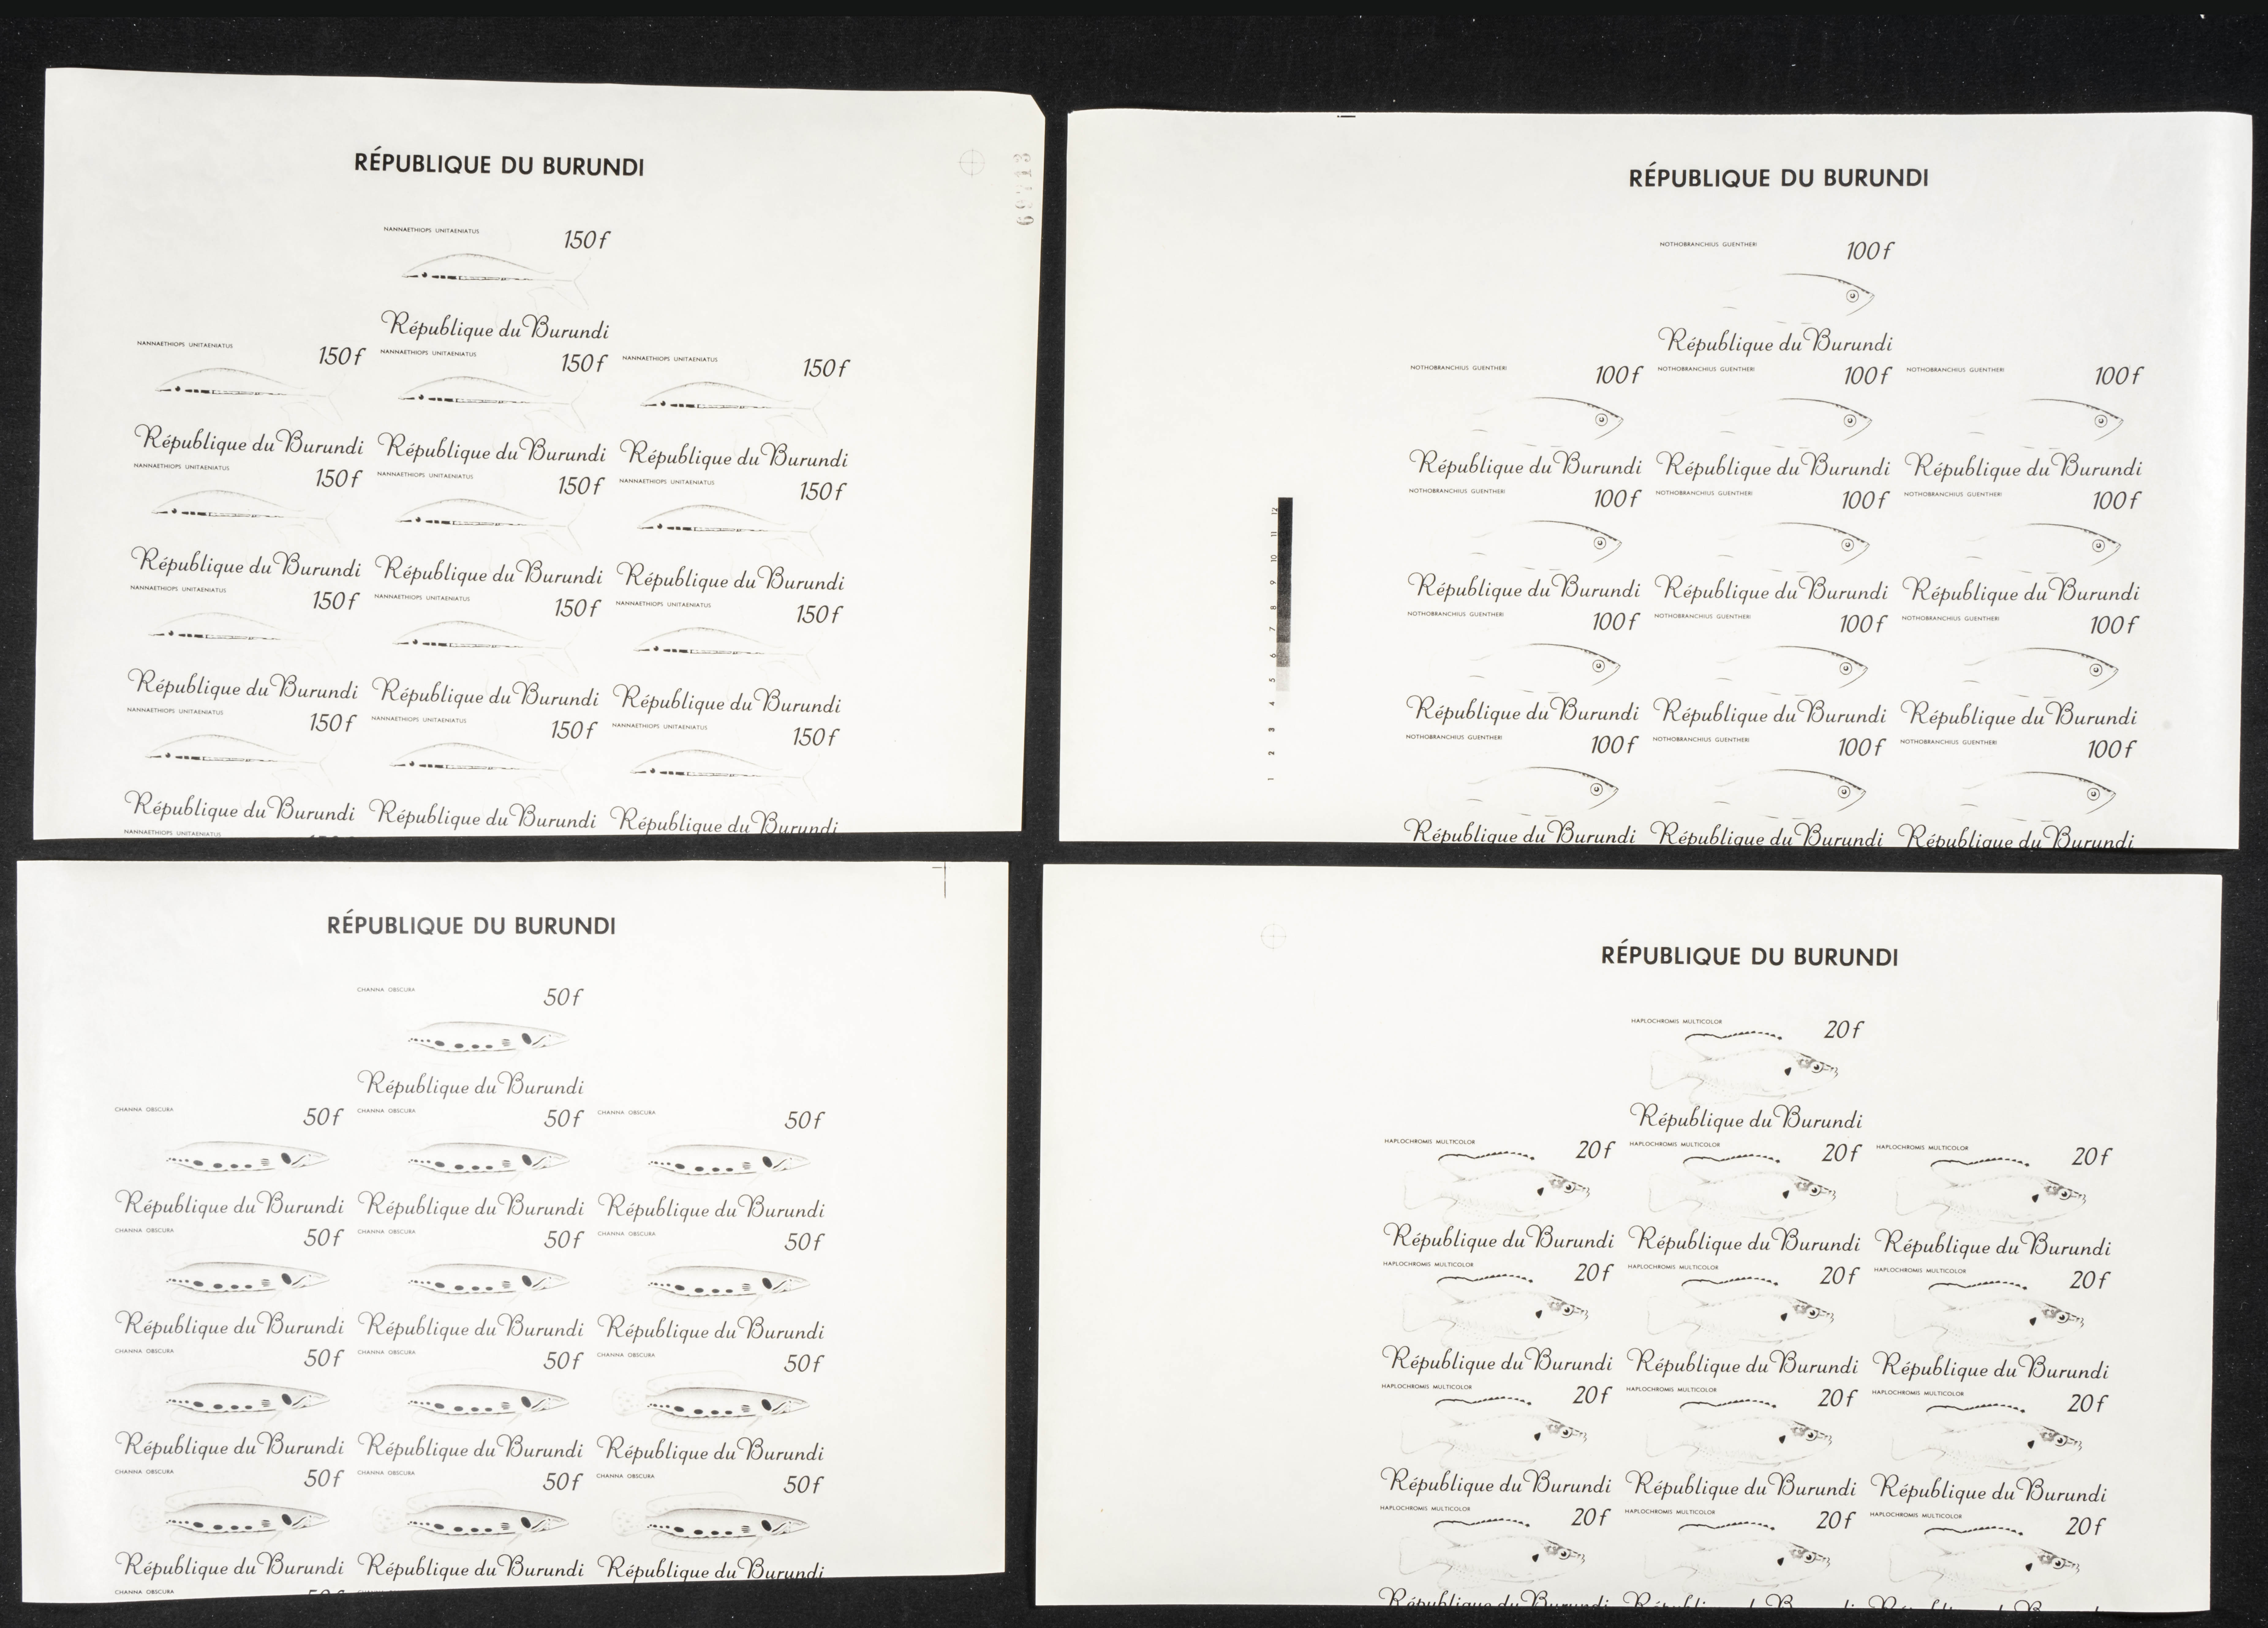 RÉPUBLIQUE DU BURUNDI
NANNAETHIOPS UNITAENIATUS 150f
République du Burundi
NANNAETHIOPS UNITAENIATUS 150f NANNAETHIOPS UNITAENIATUS 150f NANNAETHIOPS UNITAENIATUS 150f
République du Burundi République du Burundi République du Burundi
NANNAETHIOPS UNITAENIATUS 150f NANNAETHIOPS UNITAENIATUS 150f NANNAETHIOPS UNITAENIATUS 150f
République du Burundi République du Burundi République du Burundi
NANNAETHIOPS UNITAENIATUS 150f NANNAETHIOPS UNITAENIATUS 150f NANNAETHIOPS UNITAENIATUS 150f
République du Burundi République du Burundi République du Burundi
NANNAETHIOPS UNITAENIATUS 150f NANNAETHIOPS UNITAENIATUS 150f NANNAETHIOPS UNITAENIATUS 150f
République du Burundi République du Burundi République du Burundi
NANNAETHIOPS UNITAENIATUS
RÉPUBLIQUE DU BURUNDI
NOTHOBRANCHIUS GUENTHERI 100f
République du Burundi
NOTHOBRANCHIUS GUENTHERI 100f NOTHOBRANCHIUS GUENTHERI 100f NOTHOBRANCHIUS GUENTHERI 100f
République du Burundi République du Burundi République du Burundi
NOTHOBRANCHIUS GUENTHERI 100f NOTHOBRANCHIUS GUENTHERI 100f NOTHOBRANCHIUS GUENTHERI 100f
République du Burundi République du Burundi République du Burundi
NOTHOBRANCHIUS GUENTHERI 100f NOTHOBRANCHIUS GUENTHERI 100f NOTHOBRANCHIUS GUENTHERI 100f
République du Burundi République du Burundi République du Burundi
NOTHOBRANCHIUS GUENTHERI 100f NOTHOBRANCHIUS GUENTHERI 100f NOTHOBRANCHIUS GUENTHERI 100f
République du Burundi République du Burundi République du Burundi
1 2 3 4 5 6 7 8 9 10 11 12
RÉPUBLIQUE DU BURUNDI
CHANNA OBSCURA 50f
République du Burundi
CHANNA OBSCURA 50f CHANNA OBSCURA 50f CHANNA OBSCURA 50f
République du Burundi République du Burundi République du Burundi
CHANNA OBSCURA 50f CHANNA OBSCURA 50f CHANNA OBSCURA 50f
République du Burundi République du Burundi République du Burundi
CHANNA OBSCURA 50f CHANNA OBSCURA 50f CHANNA OBSCURA 50f
République du Burundi République du Burundi République du Burundi
CHANNA OBSCURA 50f CHANNA OBSCURA 50f CHANNA OBSCURA 50f
République du Burundi République du Burundi République du Burundi
CHANNA OBSCURA 50f
RÉPUBLIQUE DU BURUNDI
HAPLOCHROMIS MULTICOLOR 20f
République du Burundi
HAPLOCHROMIS MULTICOLOR 20f HAPLOCHROMIS MULTICOLOR 20f HAPLOCHROMIS MULTICOLOR 20f
République du Burundi République du Burundi République du Burundi
HAPLOCHROMIS MULTICOLOR 20f HAPLOCHROMIS MULTICOLOR 20f HAPLOCHROMIS MULTICOLOR 20f
République du Burundi République du Burundi République du Burundi
HAPLOCHROMIS MULTICOLOR 20f HAPLOCHROMIS MULTICOLOR 20f HAPLOCHROMIS MULTICOLOR 20f
République du Burundi République du Burundi République du Burundi
HAPLOCHROMIS MULTICOLOR 20f HAPLOCHROMIS MULTICOLOR 20f HAPLOCHROMIS MULTICOLOR 20f
République du Burundi